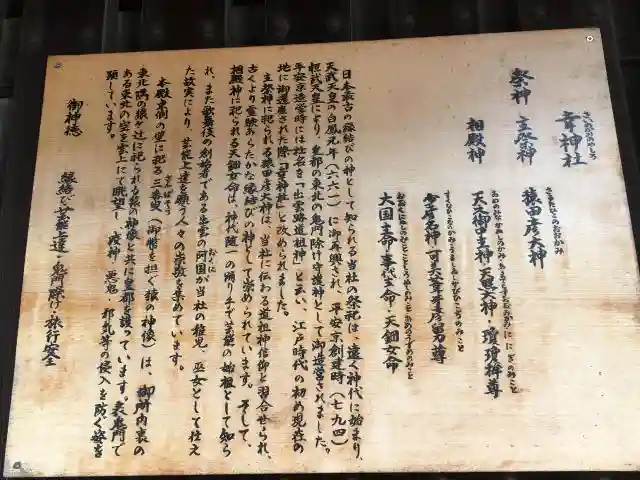 さいのかみのやしろ
幸神社
祭神
主祭神
さるたひこのおおかみ
猿田彦大神
相殿神
あめのみなかぬしのかみ・あまてらすおおみかみ・ににぎのみこと
天之御中主神・天照大神・瓊瓊杵尊
少彦名神・可美葦芽彦舅尊
大国主命・事代主命・天鈿女命
日本最古の縁結びの神として知られる当社の祭祀は、遠く神代に始まり、
天武天皇の白鳳元年(六六一)に御再興され、平安京創建時(七九四)
桓武天皇により、皇都の東北の鬼門除け守護神として御造営されました。
平安京造営時には社名を「出雲路道祖神」と云い、江戸時代の初め現在の
地に御遷座された際「幸神社」と改められました。
主祭神に祀られる猿田彦大神は、当社に伝わる道祖神信仰と習合せられ、
古くより霊験あらたかな縁結びの神として崇められています。そして、
相殿神に祀られる天鈿女命は、神代随一の踊り手で芸能の始祖として知ら
れ、また歌舞伎の創始者である出雲の阿国が当社の稚児、巫女として仕え
た故実により、芸能上達を願う人々の崇敬を集めています。
本殿東側の壁に祀る三番叟(御幣を担ぐ猿の神像)は、御所内裏の
東北隅の猿ヶ辻に祀られる猿の神像と共に皇都を護っています。表鬼門で
ある東北の空を雲上にて眺望し、疫神・悪鬼・邪気等の侵入を防ぐ姿を
顕しています。
御神徳
縁結び・芸能上達・鬼門除け・旅行安全